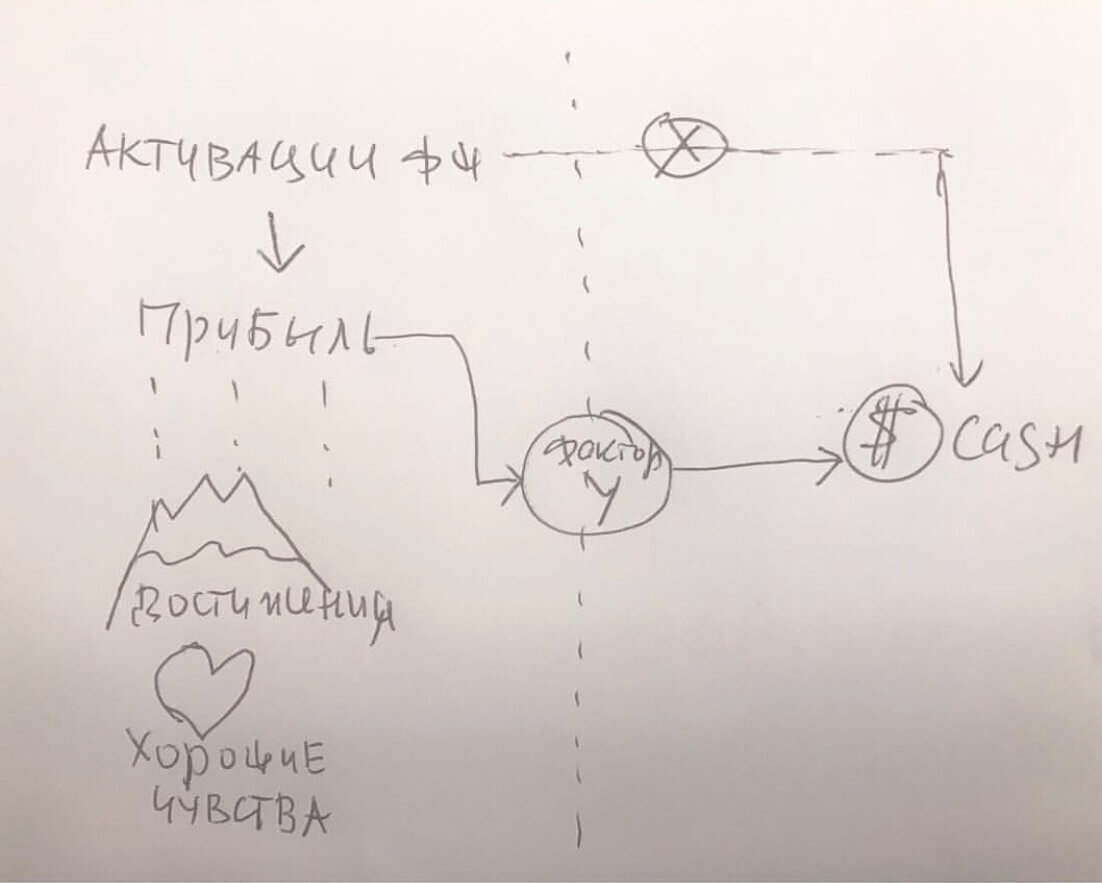 АКТИВАЦИИ ФШ
X
ПРИБЫЛЬ
ФАКТОР
У
$ CASH
ДОСТИЖЕНИЯ
ХОРОШИЕ
ЧУВСТВА